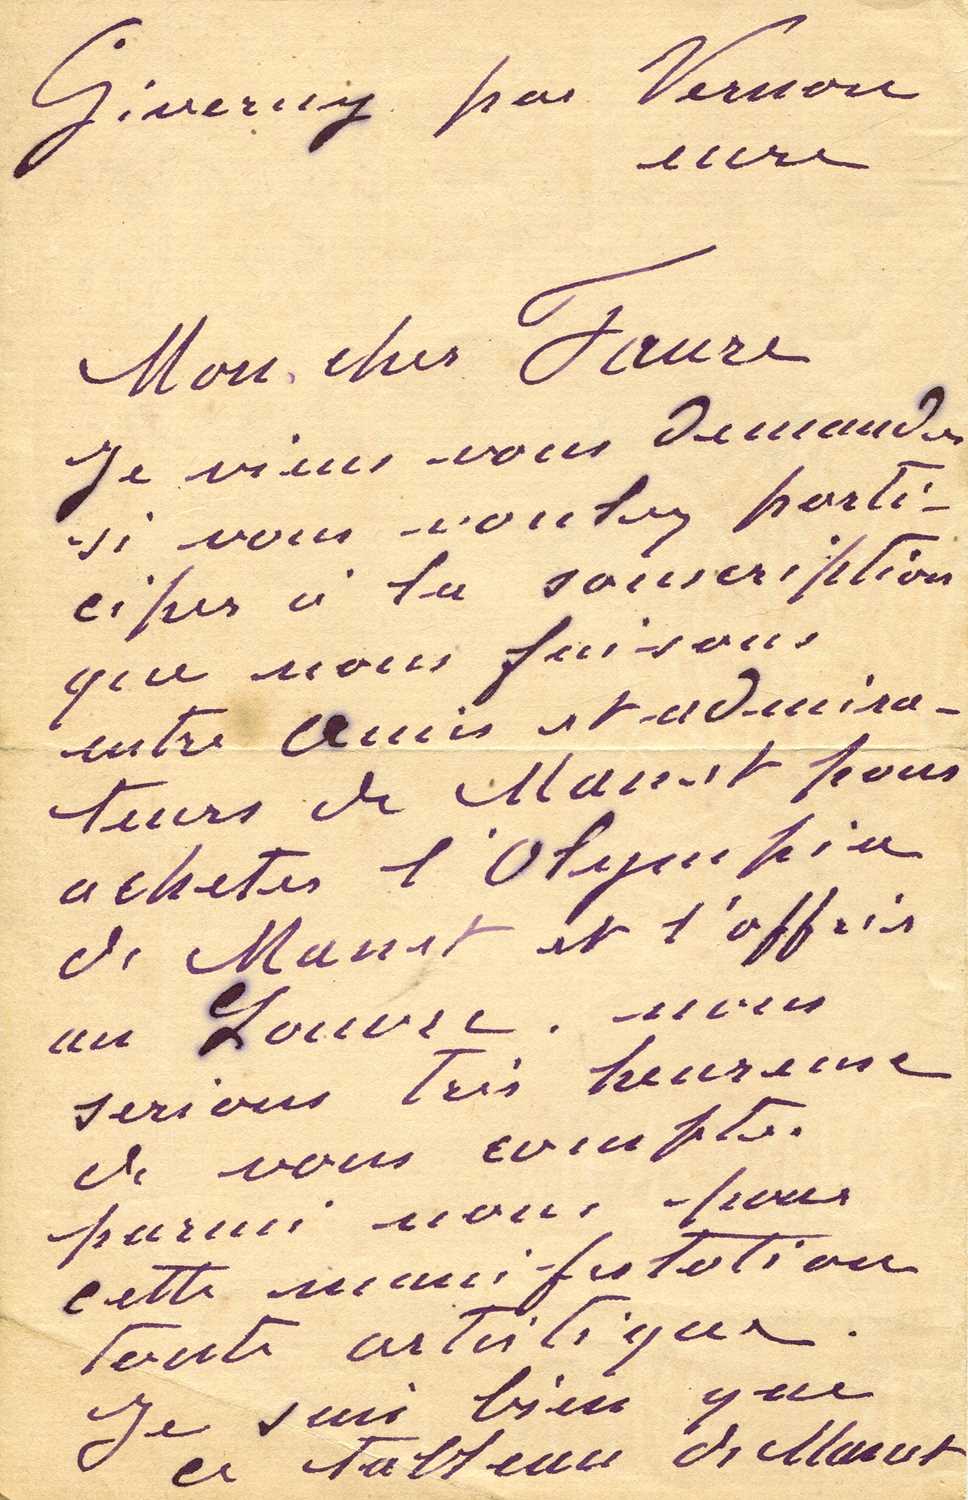 Giverny par Vernon
eure
Mon cher Faure
Je viens vous demander
si vous voulez parti-
ciper à la souscription
que nous faisons
entre amis et admira-
teurs de Manet pour
acheter l'Olympia
de Manet et l'offrir
au Louvre. nous
serions très heureux
de vous compter
parmi nous pour
cette manifestation
toute artistique.
Je sais bien que
ce tableau de Manet